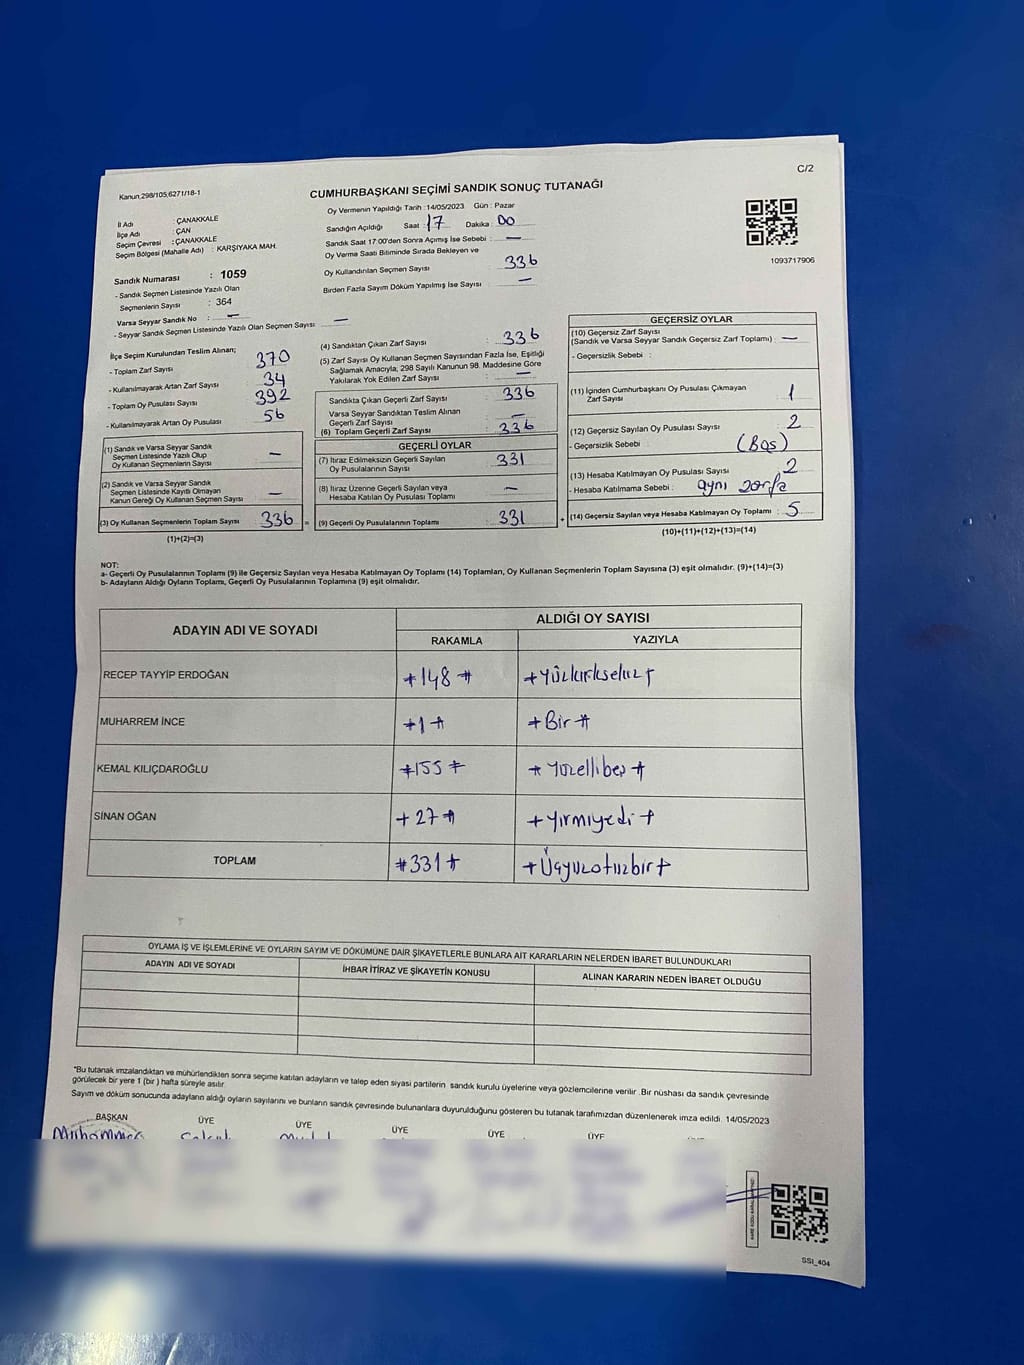 C/2
Kanun,298/105,6271/18-1
CUMHURBAŞKANI SEÇİMİ SANDIK SONUÇ TUTANAĞI
Oy Vermenin Yapıldığı Tarih :14/05/2023 Gün : Pazar
İl Adı : ÇANAKKALE
İlçe Adı : ÇAN
Seçim Çevresi : ÇANAKKALE
Seçim Bölgesi (Mahalle Adı) : KARŞIYAKA MAH.
Sandığın Açıldığı Saat : 17 Dakika : 00
Sandık Saat 17:00'den Sonra Açılmış İse Sebebi : —
Oy Verme Saati Bitiminde Sırada Bekleyen ve
Oy Kullandırılan Seçmen Sayısı : 336
Birden Fazla Sayım Döküm Yapılmış İse Sayısı : —
1093717906
Sandık Numarası : 1059
- Sandık Seçmen Listesinde Yazılı Olan
Seçmenlerin Sayısı : 364
Varsa Seyyar Sandık No : —
- Seyyar Sandık Seçmen Listesinde Yazılı Olan Seçmen Sayısı: —
İlçe Seçim Kurulundan Teslim Alınan;
- Toplam Zarf Sayısı 370
- Kullanılmayarak Artan Zarf Sayısı 34
- Toplam Oy Pusulası Sayısı 392
- Kullanılmayarak Artan Oy Pusulası 56
(1) Sandık ve Varsa Seyyar Sandık
Seçmen Listesinde Yazılı Olup
Oy Kullanan Seçmenlerin Sayısı —
(2) Sandık ve Varsa Seyyar Sandık
Seçmen Listesinde Kayıtlı Olmayan
Kanun Gereği Oy Kullanan Seçmen Sayısı —
(3) Oy Kullanan Seçmenlerin Toplam Sayısı 336 =
(1)+(2)=(3)
(4) Sandıktan Çıkan Zarf Sayısı : 336
(5) Zarf Sayısı Oy Kullanan Seçmen Sayısından Fazla İse, Eşitliği
Sağlamak Amacıyla, 298 Sayılı Kanunun 98. Maddesine Göre
Yakılarak Yok Edilen Zarf Sayısı : —
Sandıkta Çıkan Geçerli Zarf Sayısı : 336
Varsa Seyyar Sandıktan Teslim Alınan
Geçerli Zarf Sayısı : —
(6) Toplam Geçerli Zarf Sayısı : 336
GEÇERLİ OYLAR
(7) İtiraz Edilmeksizin Geçerli Sayılan
Oy Pusulalarının Sayısı : 331
(8) İtiraz Üzerine Geçerli Sayılan veya
Hesaba Katılan Oy Pusulası Toplamı : —
(9) Geçerli Oy Pusulalarının Toplamı : 331 +
GEÇERSİZ OYLAR
(10) Geçersiz Zarf Sayısı
(Sandık ve Varsa Seyyar Sandık Geçersiz Zarf Toplamı) : —
- Geçersizlik Sebebi :
(11) İçinden Cumhurbaşkanı Oy Pusulası Çıkmayan
Zarf Sayısı : 1
(12) Geçersiz Sayılan Oy Pusulası Sayısı : 2
- Geçersizlik Sebebi : (Boş)
(13) Hesaba Katılmayan Oy Pusulası Sayısı : 2
- Hesaba Katılmama Sebebi : aynı zarfa
(14) Geçersiz Sayılan veya Hesaba Katılmayan Oy Toplamı : 5
(10)+(11)+(12)+(13)=(14)
NOT:
a- Geçerli Oy Pusulalarının Toplamı (9) ile Geçersiz Sayılan veya Hesaba Katılmayan Oy Toplamı (14) Toplamları, Oy Kullanan Seçmenlerin Toplam Sayısına (3) eşit olmalıdır. (9)+(14)=(3)
b- Adayların Aldığı Oyların Toplamı, Geçerli Oy Pusulalarının Toplamına (9) eşit olmalıdır.
ADAYIN ADI VE SOYADI
ALDIĞI OY SAYISI
RAKAMLA YAZIYLA
RECEP TAYYİP ERDOĞAN #148# #Yüzkırksekiz#
MUHARREM İNCE #1# #Bir#
KEMAL KILIÇDAROĞLU #155# #Yüzellibeş#
SİNAN OĞAN #27# #Yirmiyedi#
TOPLAM #331# #Üçyüzotuzbir#
OYLAMA İŞ VE İŞLEMLERİNE VE OYLARIN SAYIM VE DÖKÜMÜNE DAİR ŞİKAYETLERLE BUNLARA AİT KARARLARIN NELERDEN İBARET BULUNDUKLARI
ADAYIN ADI VE SOYADI İHBAR İTİRAZ VE ŞİKAYETİN KONUSU ALINAN KARARIN NEDEN İBARET OLDUĞU
*Bu tutanak imzalandıktan ve mühürlendikten sonra seçime katılan adayların ve talep eden siyasi partilerin sandık kurulu üyelerine veya gözlemcilerine verilir. Bir nüshası da sandık çevresinde
görülecek bir yere 1 (bir) hafta süreyle asılır.
Sayım ve döküm sonucunda adayların aldığı oyların sayılarını ve bunların sandık çevresinde bulunanlara duyurulduğunu gösteren bu tutanak tarafımızdan düzenlenerek imza edildi. 14/05/2023
BAŞKAN ÜYE ÜYE ÜYE ÜYE ÜYE
SSI_404